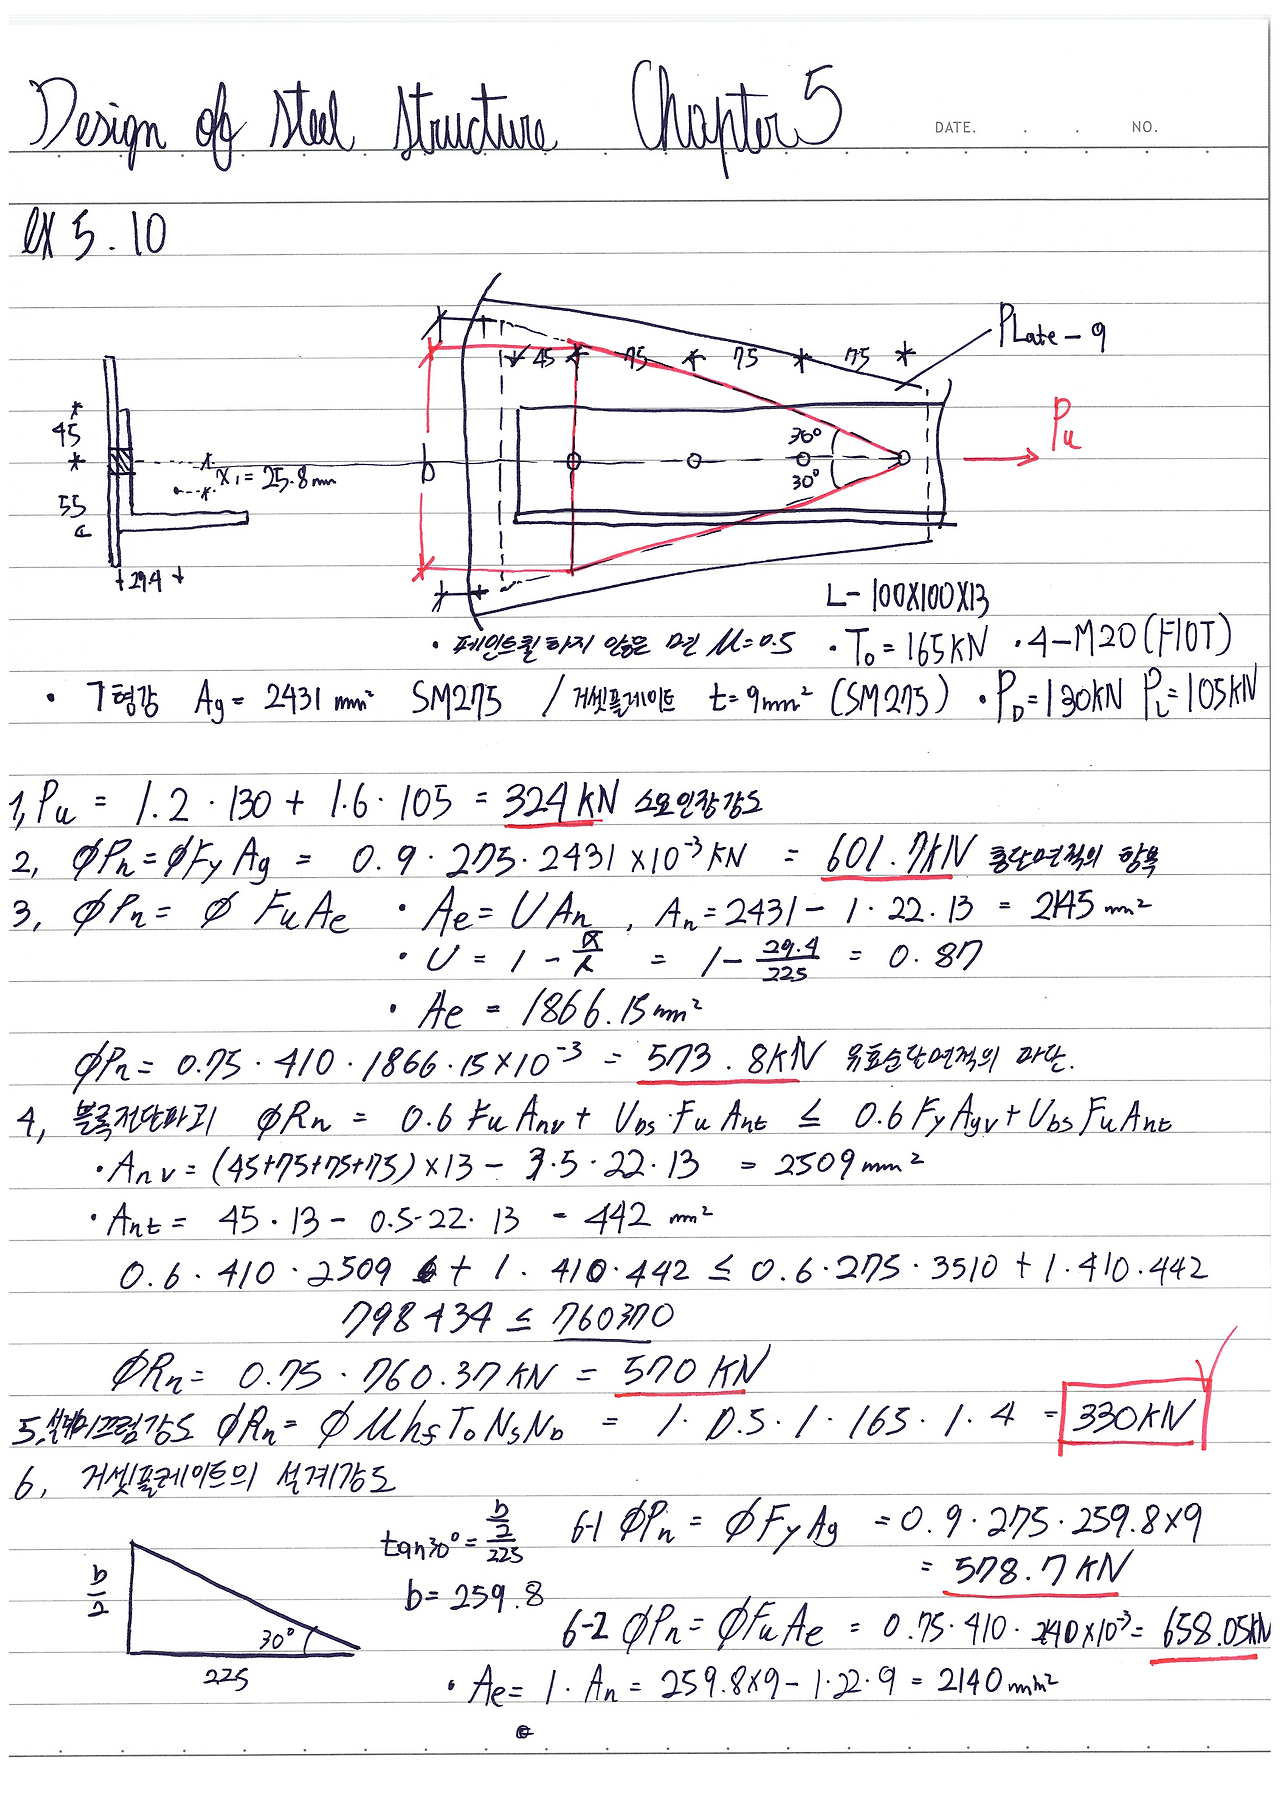 Design of steel structure Chapter 5
DATE. . . NO.
ex 5.10
Plate - 9
45 75 75 75
45
55
x₁ = 25.8mm
29.4
b
30°
30°
Pu
L- 100X100X13
· 페인트칠하지 않은 면 μ=0.5 · T₀ = 165KN · 4-M20(F10T)
· ㄱ형강 Ag = 2431 mm² SM275 / 거셋플레이트 t=9mm² (SM275) · P_D=130KN P_L=105KN
1, Pu = 1.2 · 130 + 1.6 · 105 = 324KN 소요인장강도
2, ØPn = ØFyAg = 0.9 · 275 · 2431 x10⁻³ KN = 601.7KN 총단면적의 항복
3, ØPn = Ø FuAe · Ae = UAn , An = 2431 - 1 · 22 · 13 = 2145 mm²
· U = 1 - x̄/l = 1 - 29.4/225 = 0.87
· Ae = 1866.15mm²
ØPn = 0.75 · 410 · 1866.15 x10⁻³ = 573.8KN 유효순단면적의 파단.
4, 블록전단파괴 ØRn = 0.6 Fu Anv + Ubs · Fu Ant ≤ 0.6 Fy Agv + Ubs Fu Ant
· Anv = (45+75+75+75) x 13 - 3.5 · 22 · 13 = 2509 mm²
· Ant = 45 · 13 - 0.5 · 22 · 13 = 442 mm²
0.6 · 410 · 2509 + 1 · 410 · 442 ≤ 0.6 · 275 · 3510 + 1 · 410 · 442
798434 ≤ 760370
ØRn = 0.75 · 760.37KN = 570 KN
5, 설계미끄럼강도 ØRn = Ø μ hf T₀ Ns Nb = 1 · 0.5 · 1 · 165 · 1 · 4 = 330KN
6, 거셋플레이트의 설계강도
b/2
30°
225
tan30° = (b/2)/225
b = 259.8
6-1 ØPn = ØFyAg = 0.9 · 275 · 259.8 x 9
= 578.7KN
6-2 ØPn = ØFuAe = 0.75 · 410 · 2140 x10⁻³ = 658.05KN
· Ae = 1 · An = 259.8x9 - 1 · 22 · 9 = 2140mm²